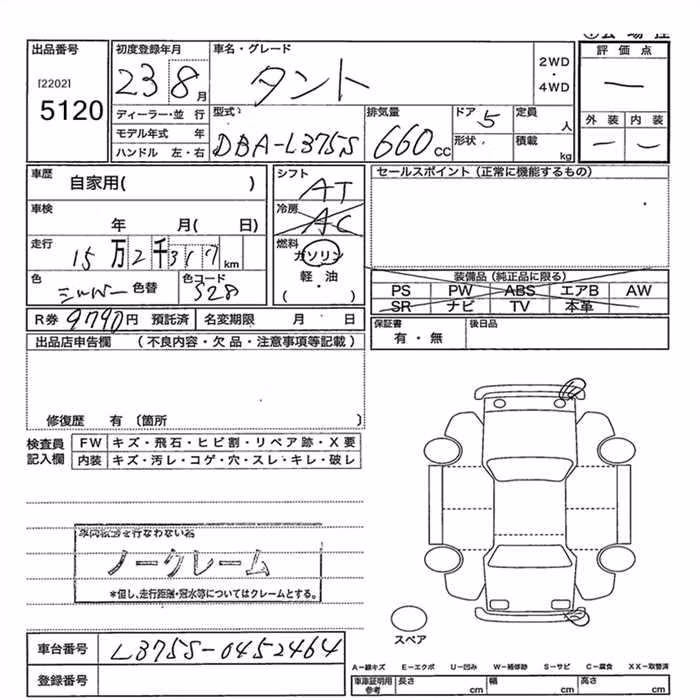 出品番号
[2202]
5120
初度登録年月
23 8月
車名・グレード
タント
2WD
・
4WD
評価点
—
外装 内装
— —
ディーラー・並 行
モデル年式 年
ハンドル 左・右
型式
DBA-L375S
排気量
660cc
ドア 5
形状
定員 人
積載 kg
車歴
自家用( )
車検
年 月( 日)
走行
15万2千317km
色 シルバー 色替
色コード S28
シフト
AT
冷房
AC
燃料
ガソリン
軽・油
( )
セールスポイント(正常に機能するもの)
装備品(純正品に限る)
PS PW ABS エアB AW
SR ナビ TV 本革
R券 9790円 預託済 名変期限 月 日
保証書
有・無
後日品
出品店申告欄 (不良内容・欠品・注意事項等記載)
修復歴 有〔箇所 〕
検査員
記入欄
FW キズ・飛石・ヒビ割・リペア跡・X要
内装 キズ・汚レ・コゲ・穴・スレ・キレ・破レ
ノークレーム
*但し、走行距離・冠水等についてはクレームとする。
スペア
車台番号
L375S-0452464
登録番号
A-線キズ E-エクボ U-凹み W-補修跡 S-サビ C-腐食 XX-取替済
車庫証明用
参考
長さ cm
幅 cm
高さ cm